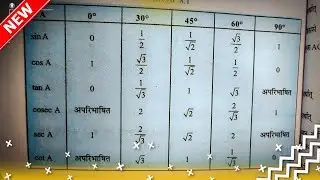 NEW
A 0° 30° 45° 60° 90°
sin A 0 1/2 1/√2 √3/2 1
cos A 1 √3/2 1/√2 1/2 0
tan A 0 1/√3 1 √3 अपरिभाषित
cosec A अपरिभाषित 2 √2 2/√3 1
sec A 1 2/√3 √2 2 अपरिभाषित
cot A अपरिभाषित √3 1 1/√3 0